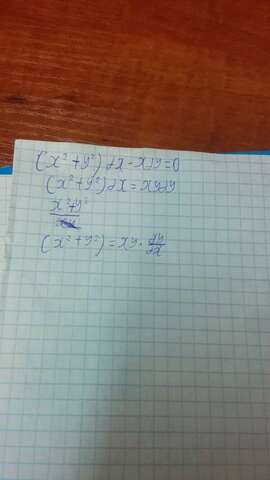 (x² + y²) dx - xydy = 0
(x² + y²) dx = xydy
x² + y²
(x² + y²) = xy · dy/dx